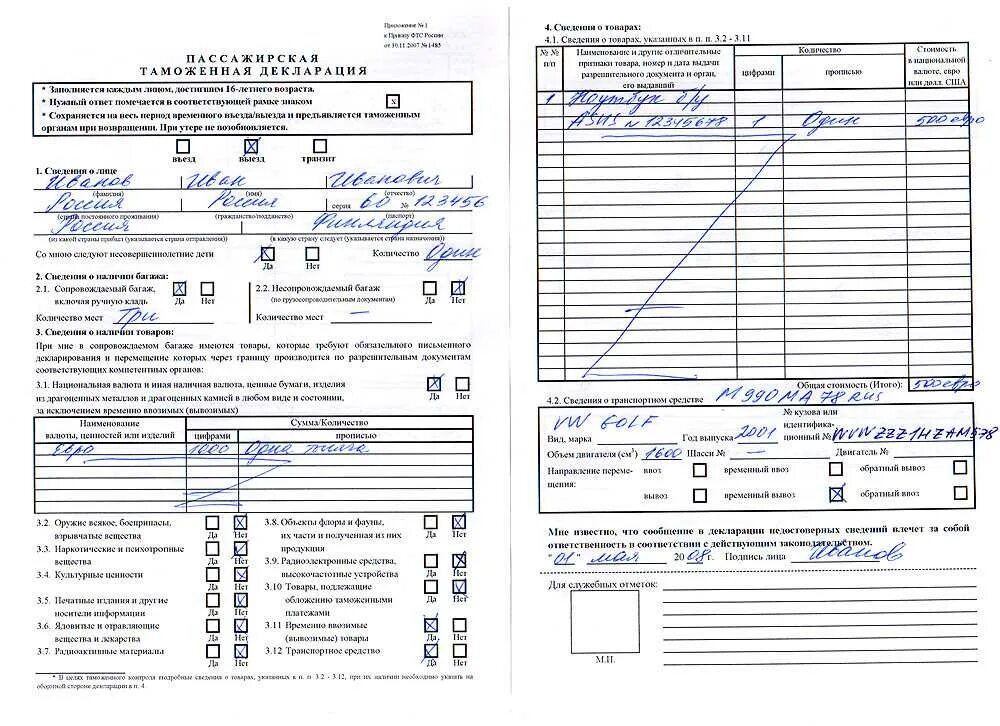 Приложение № 1
к Приказу ФТС России
от 30.11.2007 № 1485
ПАССАЖИРСКАЯ
ТАМОЖЕННАЯ ДЕКЛАРАЦИЯ
* Заполняется каждым лицом, достигшим 16-летнего возраста.
* Нужный ответ помечается в соответствующей рамке знаком x
* Сохраняется на весь период временного въезда/выезда и предъявляется таможенным
органам при возвращении. При утере не возобновляется.
въезд выезд транзит
1. Сведения о лице
Иванов Иван Иванович
(фамилия) (имя) (отчество)
Россия Россия серия 60 № 123456
(страна постоянного проживания) (гражданство/подданство) (паспорт)
Россия Финляндия
(из какой страны прибыл (указывается страна отправления)) (в какую страну следует (указывается страна назначения))
Со мною следуют несовершеннолетние дети Количество Один
Да Нет
2. Сведения о наличии багажа:
2.1. Сопровождаемый багаж, 2.2. Несопровождаемый багаж
включая ручную кладь Да Нет (по грузосопроводительным документам) Да Нет
Количество мест Три Количество мест —
3. Сведения о наличии товаров:
При мне в сопровождаемом багаже имеются товары, которые требуют обязательного письменного
декларирования и перемещение которых через границу производится по разрешительным документам
соответствующих компетентных органов:
3.1. Национальная валюта и иная наличная валюта, ценные бумаги, изделия
из драгоценных металлов и драгоценных камней в любом виде и состоянии, Да Нет
за исключением временно ввозимых (вывозимых)
Наименование Сумма/Количество
валюты, ценностей или изделий цифрами прописью
Евро 1000 Одна тысяча
3.2. Оружие всякое, боеприпасы, 3.8. Объекты флоры и фауны,
взрывчатые вещества Да Нет их части и полученная из них Да Нет
3.3. Наркотические и психотропные продукция
вещества Да Нет 3.9. Радиоэлектронные средства,
3.4. Культурные ценности высокочастотные устройства Да Нет
Да Нет 3.10 Товары, подлежащие
3.5. Печатные издания и другие обложению таможенными Да Нет
носители информации Да Нет платежами
3.6. Ядовитые и отравляющие 3.11 Временно ввозимые
вещества и лекарства Да Нет (вывозимые) товары Да Нет
3.7. Радиоактивные материалы 3.12 Транспортное средство
Да Нет Да Нет
* В целях таможенного контроля подробные сведения о товарах, указанных в п. п 3.2 - 3.12, при их наличии необходимо указать на
оборотной стороне декларации в п. 4.
4. Сведения о товарах:
4.1. Сведения о товарах, указанных в п. п. 3.2 - 3.11
№ № п/п Наименование и другие отличительные признаки товара, номер и дата выдачи разрешительного документа и орган, его выдавший Количество Стоимость в национальной валюте, евро или долл. США
цифрами прописью
1 Ноутбук б/у
ASUS N 12345678 1 Один 500 евро
Общая стоимость (Итого): 500 евро
4.2. Сведения о транспортном средстве М990МА 78 RUS
VW GOLF № кузова или
Вид, марка Год выпуска 2001 идентифика-
ционный № WVWZZZ1HZAM578
Объем двигателя (см3) 1600 Шасси № — Двигатель №
Направление переме- ввоз временный ввоз обратный вывоз
щения:
вывоз временный вывоз обратный ввоз
Мне известно, что сообщение в декларации недостоверных сведений влечет за собой
ответственность в соответствии с действующим законодательством.
"01" мая 2008г. Подпись лица Иванов
Для служебных отметок:
М.П.